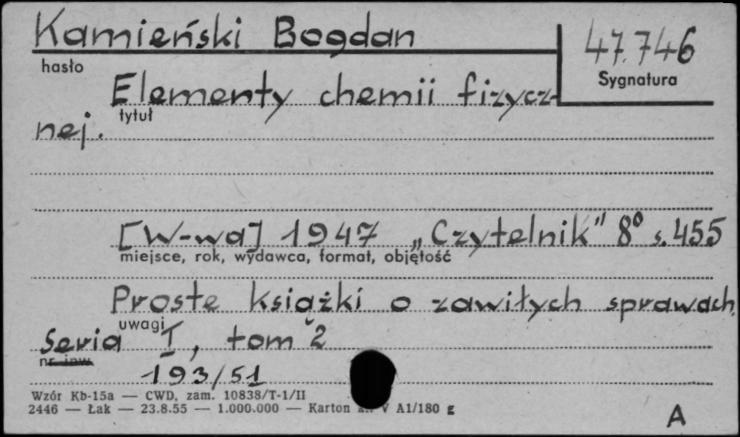 Kamieński Bogdan
47.746
hasło
Sygnatura
Elementy chemii fizycz-
tytuł
nej.
[W-wa] 1947 „Czytelnik" 8° s. 455
miejsce, rok, wydawca, format, objętość
Proste książki o zawiłych sprawach.
uwagi
Seria I, tom 2
nr inw.
193/51
Wzór Kb-15a — CWD, zam. 10838/T-1/II
2446 — Łak — 23.8.55 — 1.000.000 — Karton V A1/180 g
A